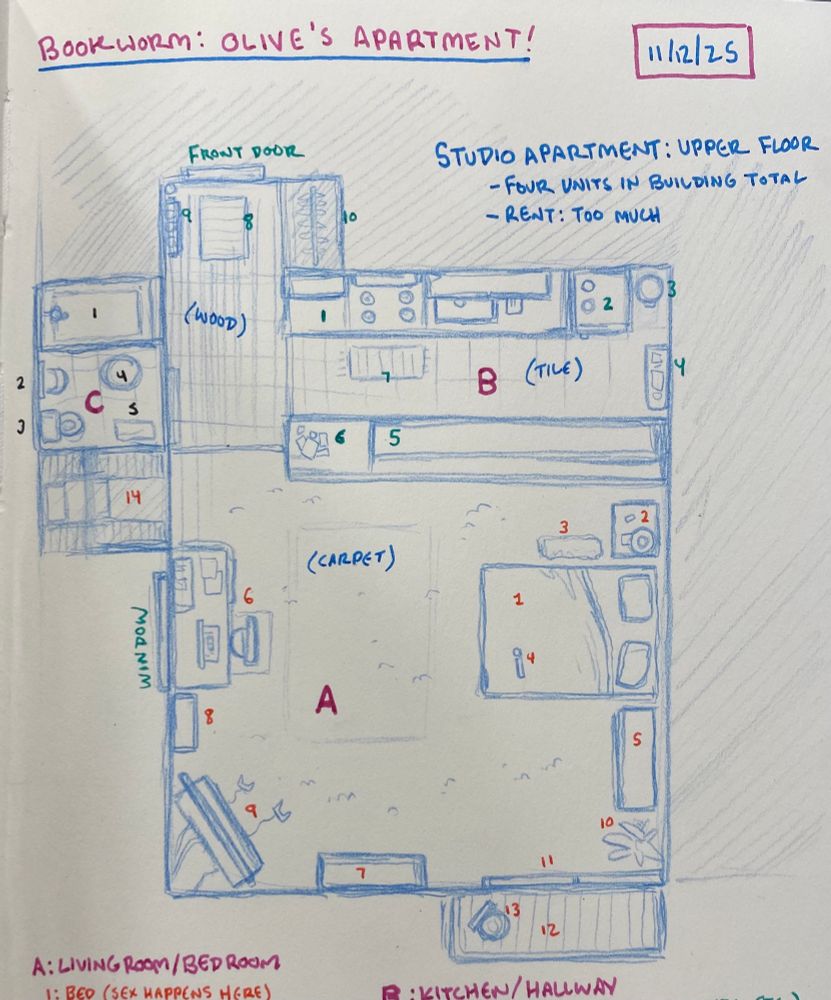 BOOKWORM: OLIVE'S APARTMENT!
11/12/25
FRONT DOOR
STUDIO APARTMENT: UPPER FLOOR
- FOUR UNITS IN BUILDING TOTAL
- RENT: TOO MUCH
9
8
10
1
(WOOD)
1
2
3
2
4
7
B
(TILE)
4
C
3
5
6
5
14
3
2
(CARPET)
1
6
WINDOW
4
A
8
5
9
10
7
11
13
12
A: LIVING ROOM/BEDROOM
1: BED (SEX HAPPENS HERE)
B: KITCHEN/HALLWAY